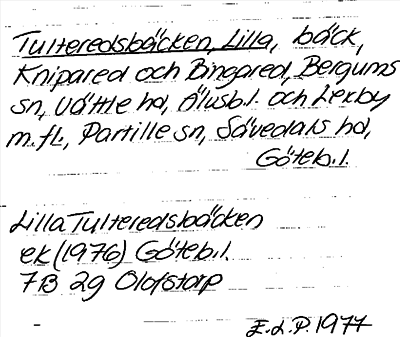 Tulteredsbäcken, Lilla, bäck,
Knipared och Bingared, Bergums
sn, Vättle hd, Älvsb.l. och Lexby
m.fl., Partille sn, Sävedals hd,
Göteb.l.
Lilla Tulteredsbäcken
ek (1976) Göteb.l.
7B 2g Olofstorp
E.L.P. 1977